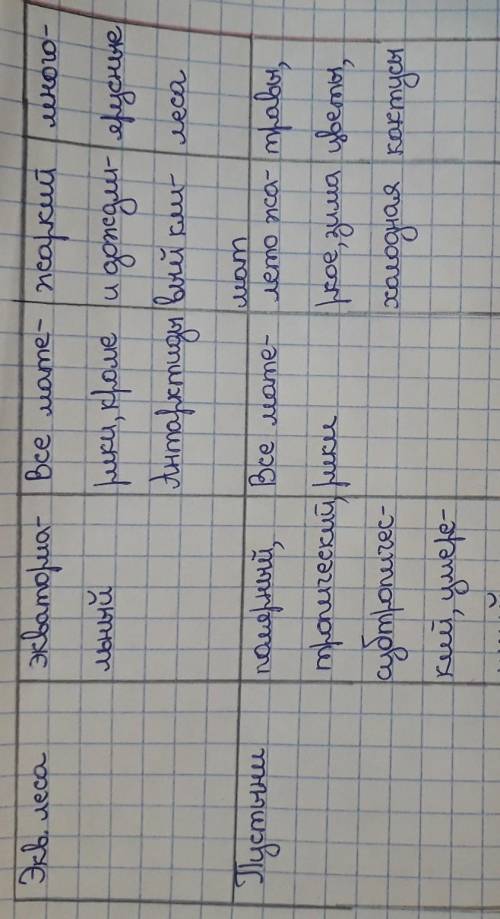 Экв. леса
экваториа-
льный
Все мате-
рики, кроме
Антарктиды
жаркий
и дождли-
вый кли-
мат
много-
ярусные
леса
Пустыни
полярный,
тропический,
субтропичес-
кий, умере-
Все мате-
рики
лето жа-
ркое, зима
холодная
травы,
цветы,
кактусы